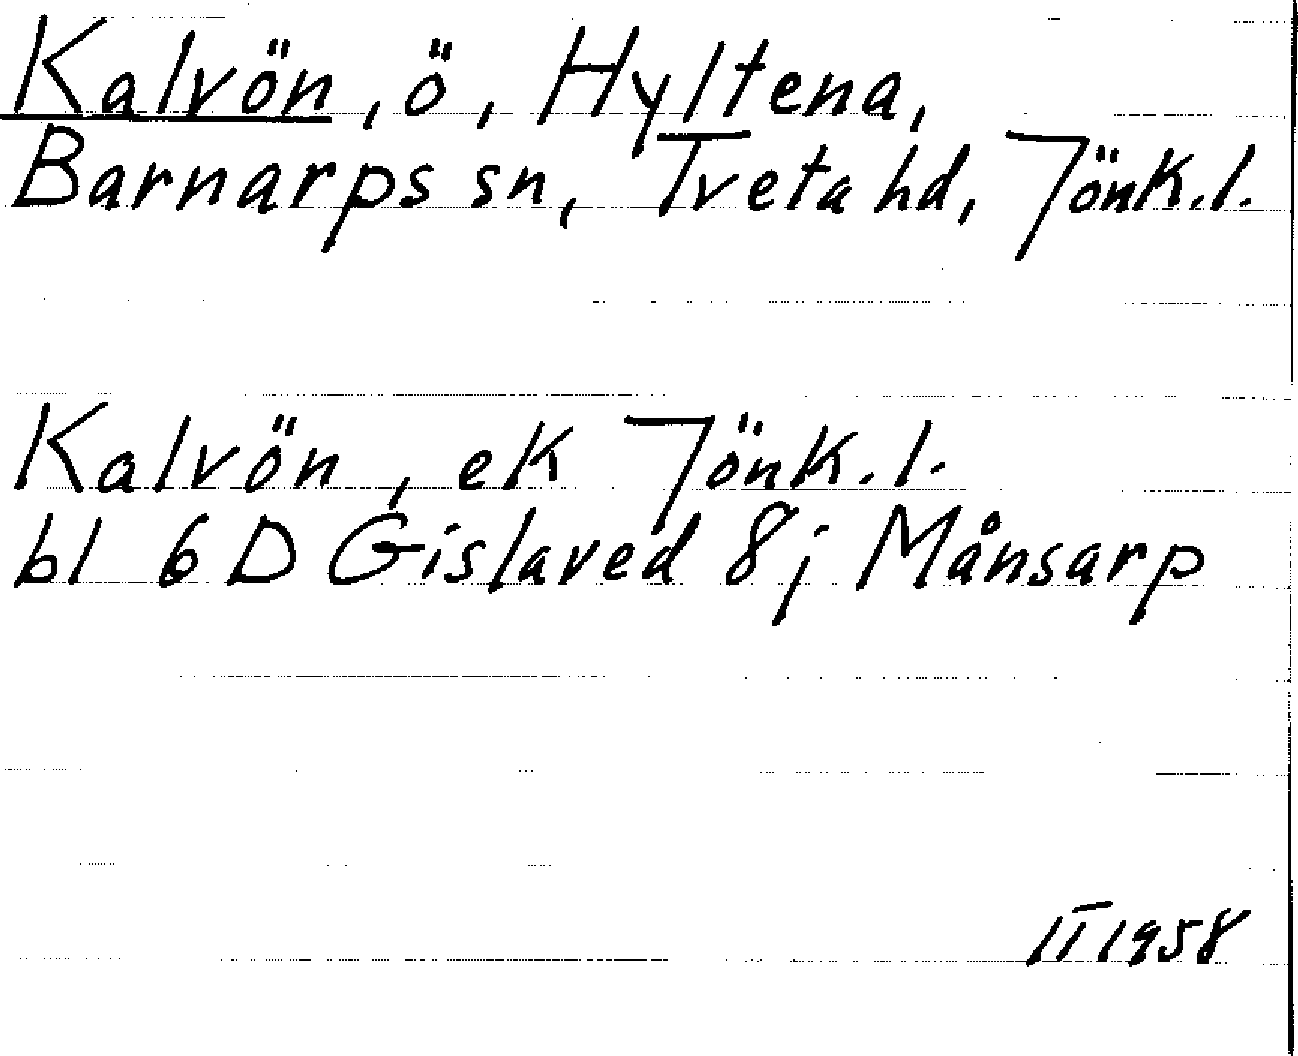 Kalvön, ö, Hyltena,
Barnarps sn, Tveta hd, Jönk.l.
Kalvön, ek Jönk.l.
bl 6D Gislaved 8j Månsarp
II 1958